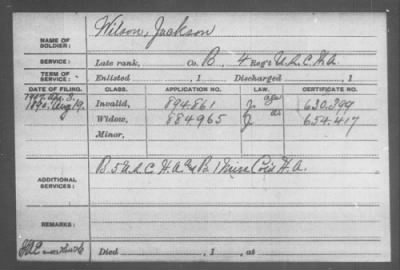 NAME OF SOLDIER: Wilson, Jackson
SERVICE: Late rank, Co. B, 4 Reg't U.S.C.H.A.
TERM OF SERVICE: Enlisted , 1 Discharged , 1
DATE OF FILING. CLASS. APPLICATION NO. LAW. CERTIFICATE NO.
Invalid, 894861 J 630.399
1890. Aug 19. Widow, 884965 J 654.417
Minor,
ADDITIONAL SERVICES: B 5 U.S.C.H.A. B 1 Miss Cold H.A.
REMARKS:
Died , 1 , at